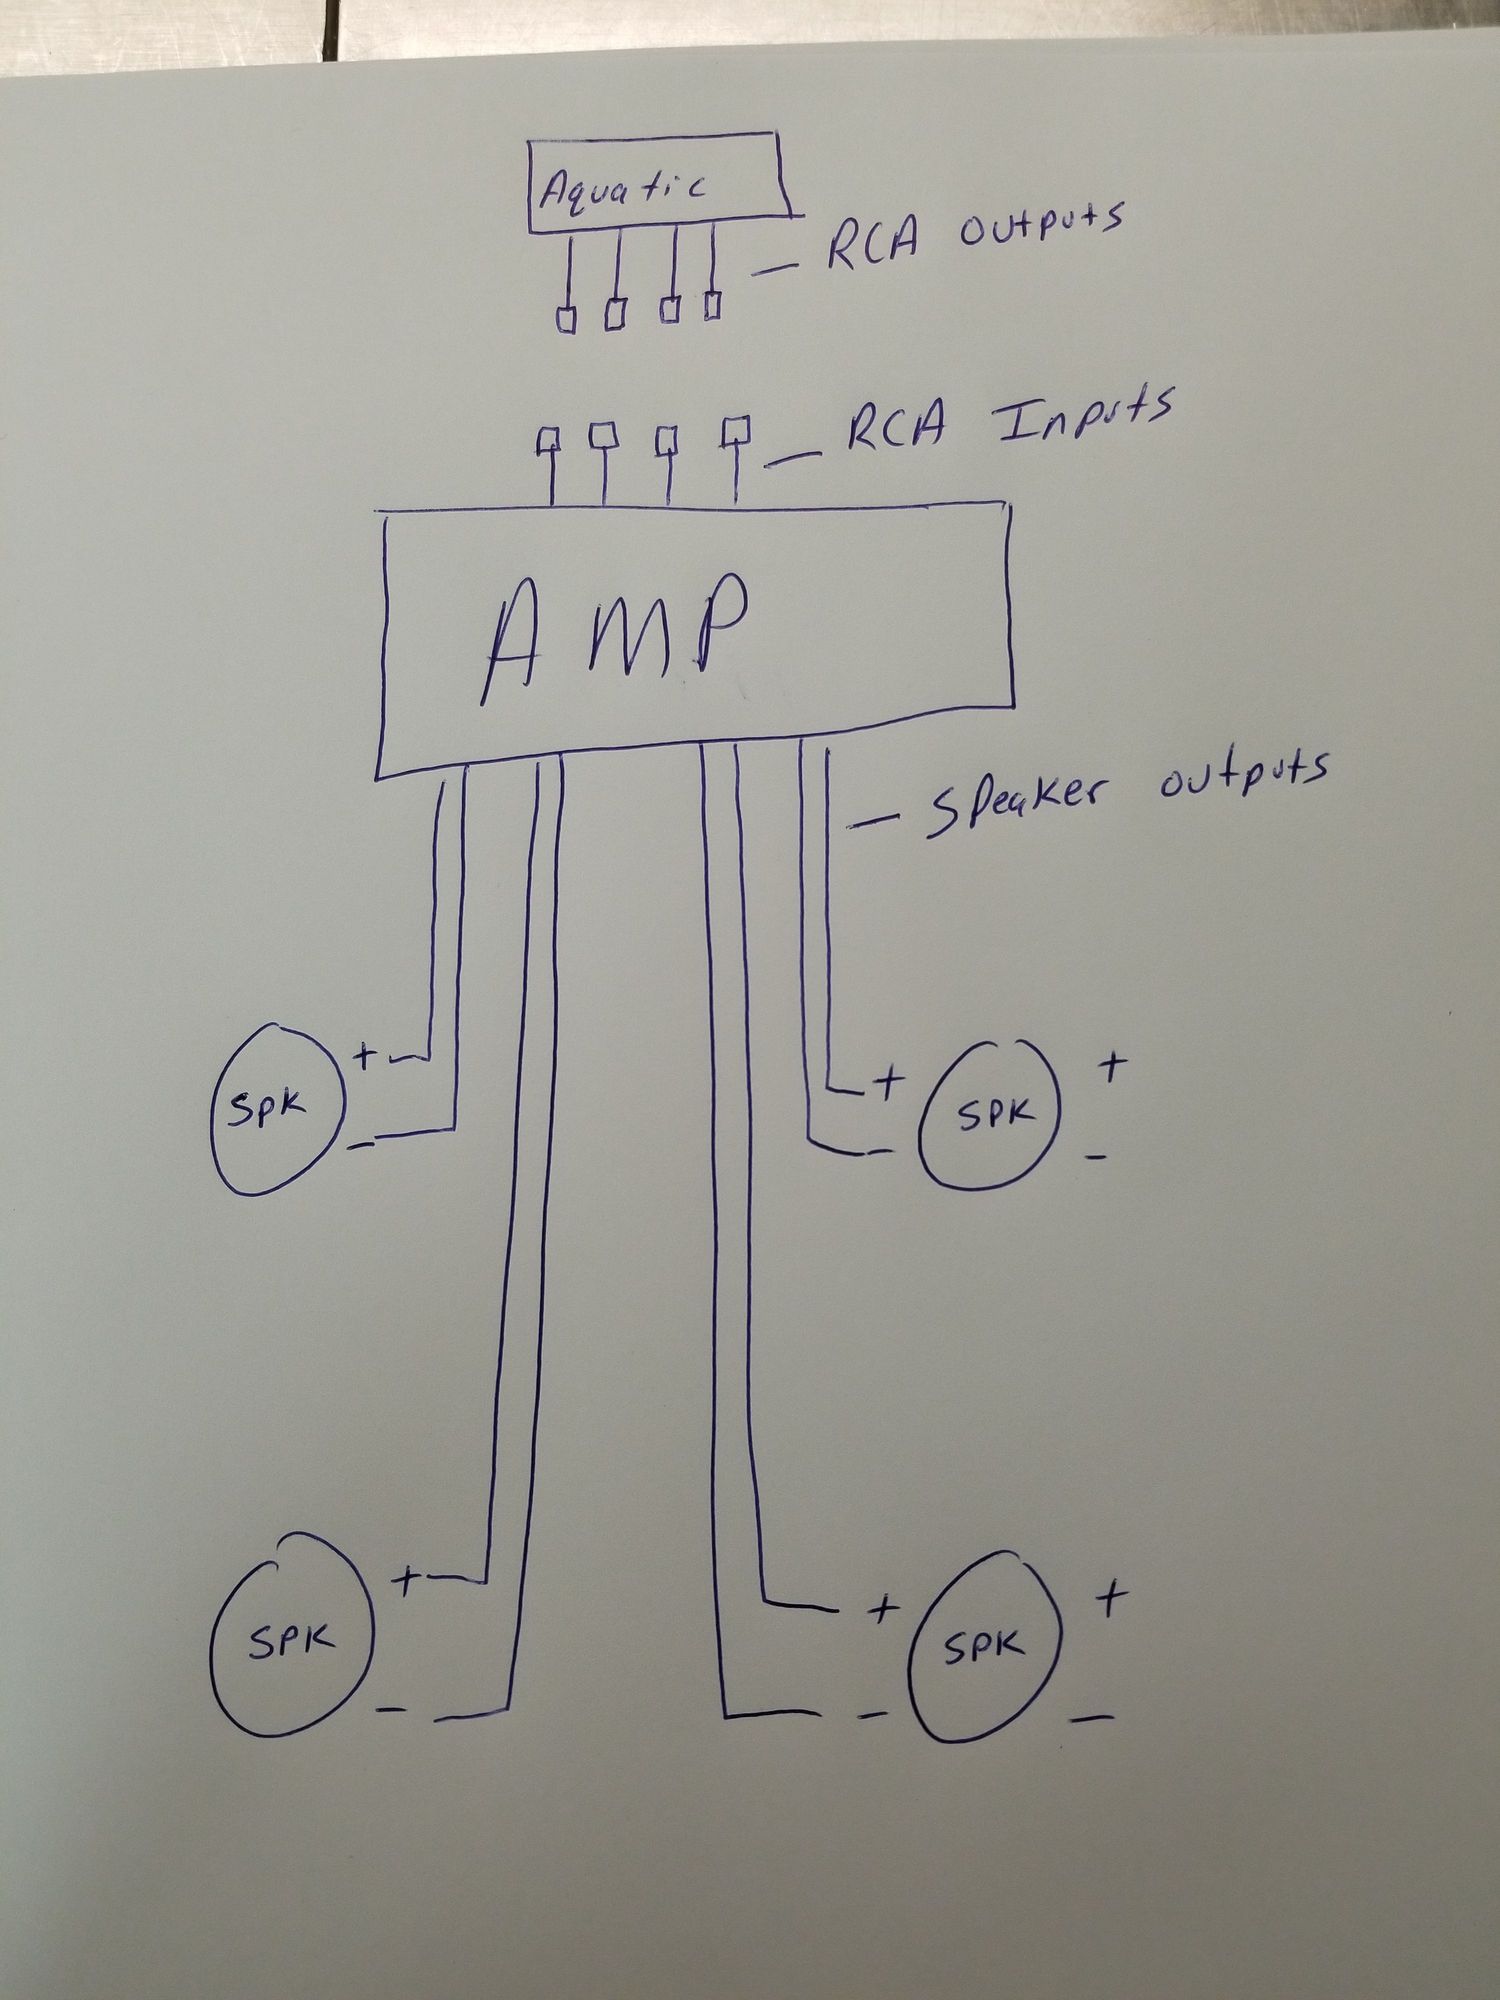 Aquatic
RCA outputs
RCA Inputs
AMP
Speaker outputs
SPK + -
+ - SPK + -
SPK + -
+ - SPK + -